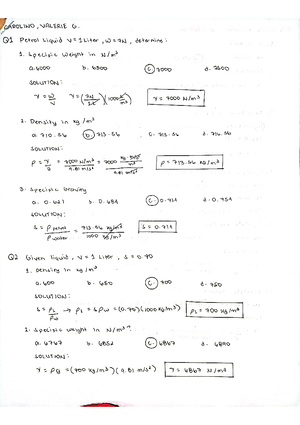 CAROLINO, VALERIE G.
Q1 Petrol Liquid V = 1 Liter , W = 7N , determine :
1. Specific Weight in N/m³
a. 6000 b. 6500 c. 7000 d. 7500
SOLUTION:
γ = W/V γ = (7N/1L)(1000L/m³) γ = 7000 N/m³
2. Density in kg/m³
b. 713.56 c. 715.56
SOLUTION:
ρ = γ/g = 7000 N/m³ / 9.81 m/s² ρ = 713.56 kg/m³
3. Specific Gravity
a. 0.621 b. 0.681 c. 0.714 d. 0.754
SOLUTION:
s = ρ petrol / ρ water = 713.56 kg/m³ / 1000 kg/m³ s = 0.714
Q2 Given liquid , V = 1 Liter , s = 0.70
1. Density in kg/m³
a. 600 b. 650 c. 700 d. 750
SOLUTION:
s = ρL/ρw → ρL = sρw = (0.70)(1000 kg/m³) ρL = 700 kg/m³
2. Specific weight in N/m³
a. 6767 b. 6852 c. 6867 d. 6890
SOLUTION:
γ = ρg = (700 kg/m³)(9.81 m/s²) γ = 6867 N/m³